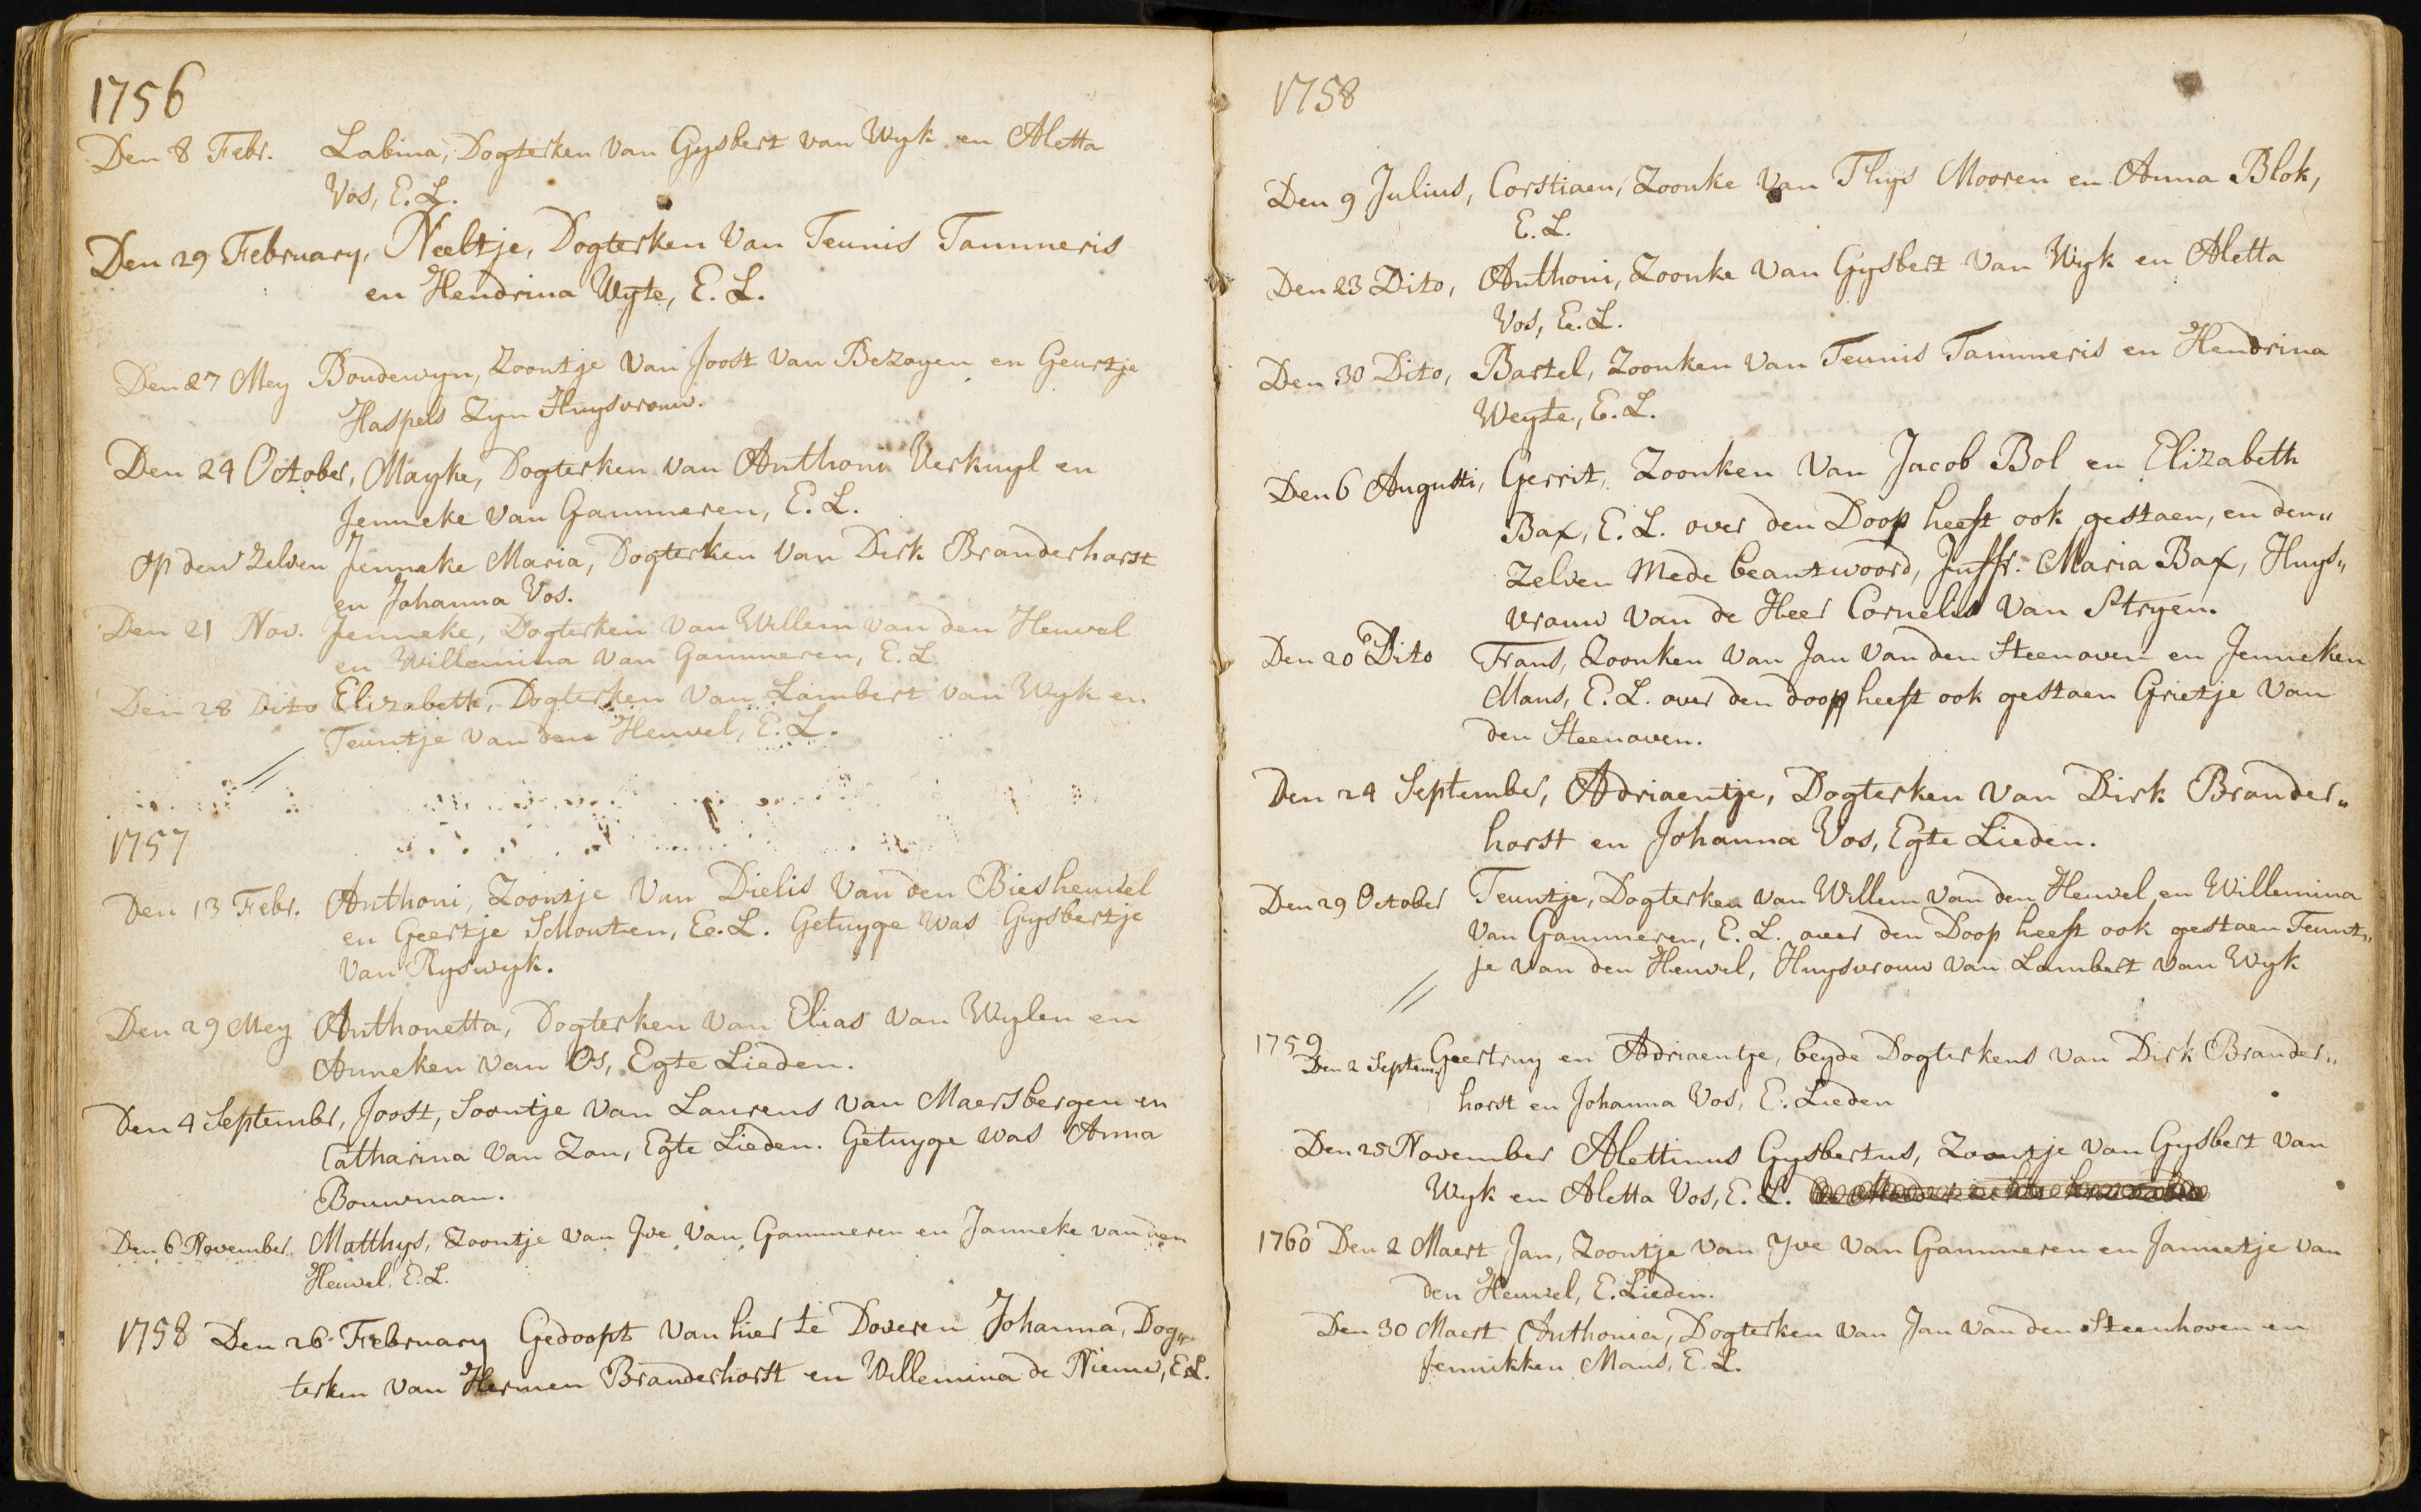 1756
Den 8 Febr. Labina, Dogterken van Gysbert van Wyk en Aletta
Vos, E. L.
Den 29 February, Neeltje, Dogterken van Teunis Tammeris
en Hendrina Wyte, E. L.
Den 27 Mey Boudewyn, Zoontje van Joost van Bezoyen en Geurtje
Haspels Zyn Huysvrouw.
Den 24 October, Mayke, Dogterken van Anthoni Verkuyl en
Jenneke van Gammeren, E. L.
Op den Zelven Jenneke Maria, Dogterken van Dirk Branderhorst
en Johanna Vos.
Den 21 Nov. Jenneke, Dogterken van Willem van den Heuvel
en Willemina van Gammeren, E. L.
Den 28 Dito Elizabeth, Dogterken van Lambert van Wyk en
Teuntje van den Heuvel, E. L.
//
1757
Den 13 Febr. Anthoni, Zoontje van Dielis van den Biesheuvel
en Geertje Schouten, Ee. L. Getuyge was Gysbertje
van Ryswyk.
Den 29 Mey Anthonetta, Dogterken van Elias van Wylen en
Anneken van Os, Egte Lieden.
Den 4 September, Joost, Soontje van Laurens van Maersbergen en
Catharina van Zon, Egte Lieden. Getuyge was Anna
Bouwman.
Den 6 November Matthys, Zoontje van Yve van Gammeren en Janneke van den
Heuvel, E. L.
1758 Den 26 February Gedoopt van hier te Doveren Johanna, Dog„
terken van Hermen Branderhorst en Willemina de Nieuw, E. L.
1758
Den 9 Julius, Corstiaen, Zoonke van Thys Mooren en Anna Blok,
E. L.
Den 23 Dito, Anthoni, Zoonke van Gysbert van Wyk en Aletta
Vos, Ee. L.
Den 30 Dito, Bartel, Zoonken van Teunis Tammeris en Hendrina
Weyte, E. L.
Den 6 Augusti, Gerrit, Zoonken van Jacob Bol en Elizabeth
Bax, E. L. over den Doop heeft ook gestaen, en den„
Zelven Mede beantwoord, Juffr. Maria Bax, Huys„
vrouw van de Heer Cornelis van Stryen.
Den 20 Dito Frans, Zoonken van Jan van den Steenoven en Jenneken
Mans, E. L. over den doop heeft ook gestaen Grietje van
den Steenoven.
Den 24 September, Adriaentje, Dogterken van Dirk Brander„
horst en Johanna Vos, Egte Lieden.
Den 29 October Teuntje, Dogterken van Willem van den Heuvel en Willemina
van Gammeren, E. L. over den Doop heeft ook gestaen Teunt„
je van den Heuvel, Huysvrouw van Lambert van Wyk
//
1759
Den 2 Septem. Geertruy en Adriaentje, beyde Dogterkens van Dirk Brander„
horst en Johanna Vos, E. Lieden
Den 25 November Alettinus Gysbertus, Zoontje van Gysbert van
Wyk en Aletta Vos, E. L.
1760 Den 2 Maert Jan, Zoontje van Yve van Gammeren en Jannetje van
den Heuvel, E. Lieden.
Den 30 Maert Anthonia, Dogterken van Jan van den Steenhoven en
Jennikken Mans, E. L.